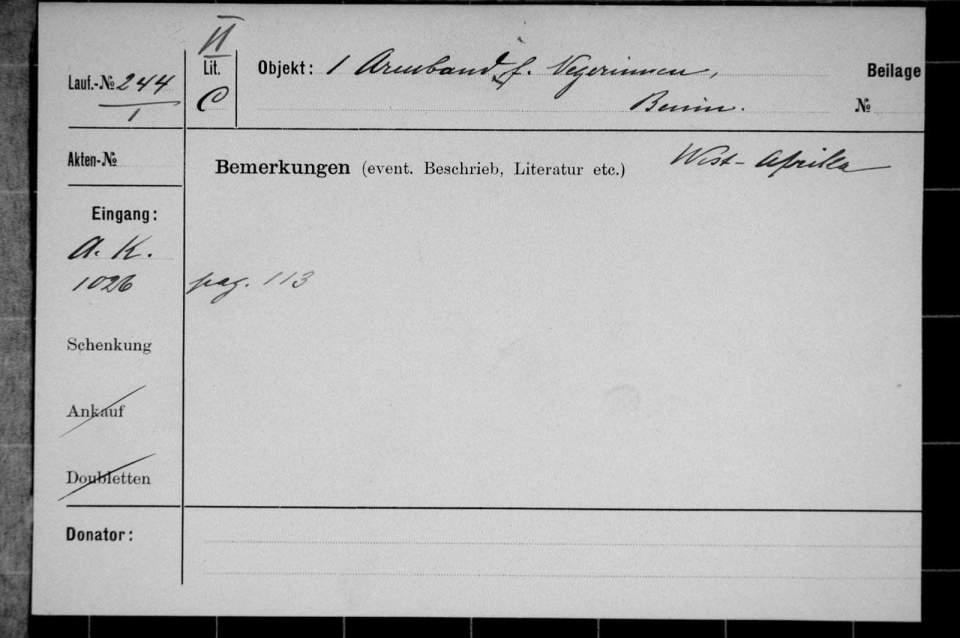 II
Lauf.-№ 244
I
Lit.
C
Objekt: 1 Armband f. Negerinnen,
Benin.
Beilage
№
Akten-№
Bemerkungen (event. Beschrieb, Literatur etc.)
West-Afrika
Eingang:
A. K.
1026
pag. 113
Schenkung
Ankauf
Doubletten
Donator: